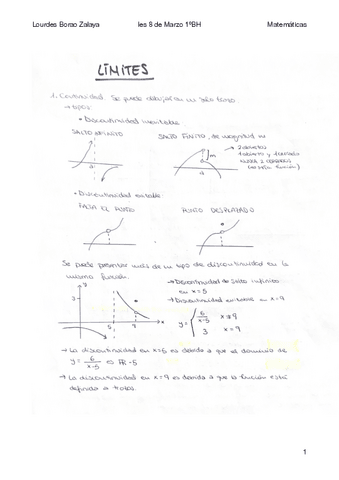 Lourdes Borao Zalaya ies 8 de Marzo 1ºBH Matemáticas
LÍMITES
1. Continuidad. Se puede dibujar en un sólo trazo
→ tipos
• Discontinuidad inevitable
SALTO INFINITO SALTO FINITO, de magnitud m
m
• Discontinuidad evitable
FALTA EL PUNTO PUNTO DESPLAZADO
Se puede presentar más de un tipo de discontinuidad en la
misma función.
→ Discontinuidad de salto infinito
en x=5
→ Discontinuidad evitable en x=9
y= 6/x-5 x≠9
3 x=9
y
3
5
x
→ La discontinuidad en x=5 es debida a que el dominio de
y= 6/x-5 es ℝ-5
→ La discontinuidad en x=9 es debida a que la función está
definida a trozos.
1